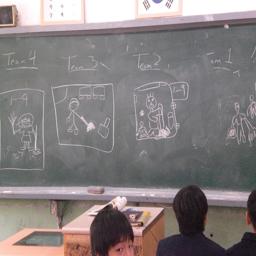 Team 4
Team 3
Team 2
Team 1
1-4